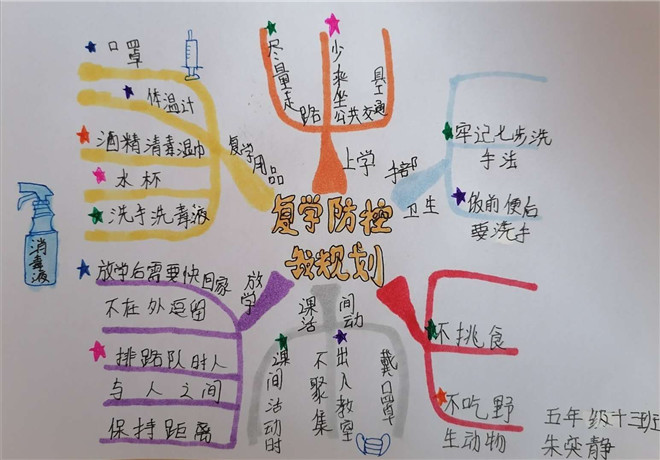 复学防控
我规划
复学用品
口罩
体温计
酒精消毒湿巾
水杯
洗手洗毒液
消毒液
上学
尽量走路
少乘坐公共交通
具工
手部
卫生
牢记七步洗
手法
饭前便后
要洗手
放学
放学后需要快回家
不在外逗留
排路队时人
与人之间
保持距离
课间
活动
课间活动时
不聚集
出入教室
戴口罩
不挑食
不吃野
生动物
五年级十三班
朱奕静